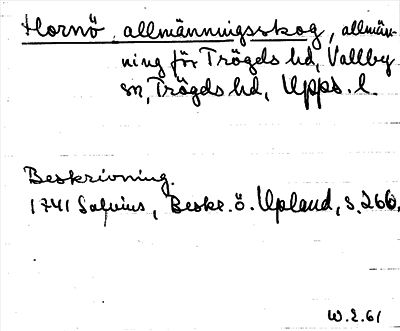 Hornö allmänningsskog, allmän-
ning för Trögds hd, Vallby
sn, Trögds hd, Upps. l.
Beskrivning.
1741 Salvius, Beskr. ö. Upland, s. 266.
W.Z.61